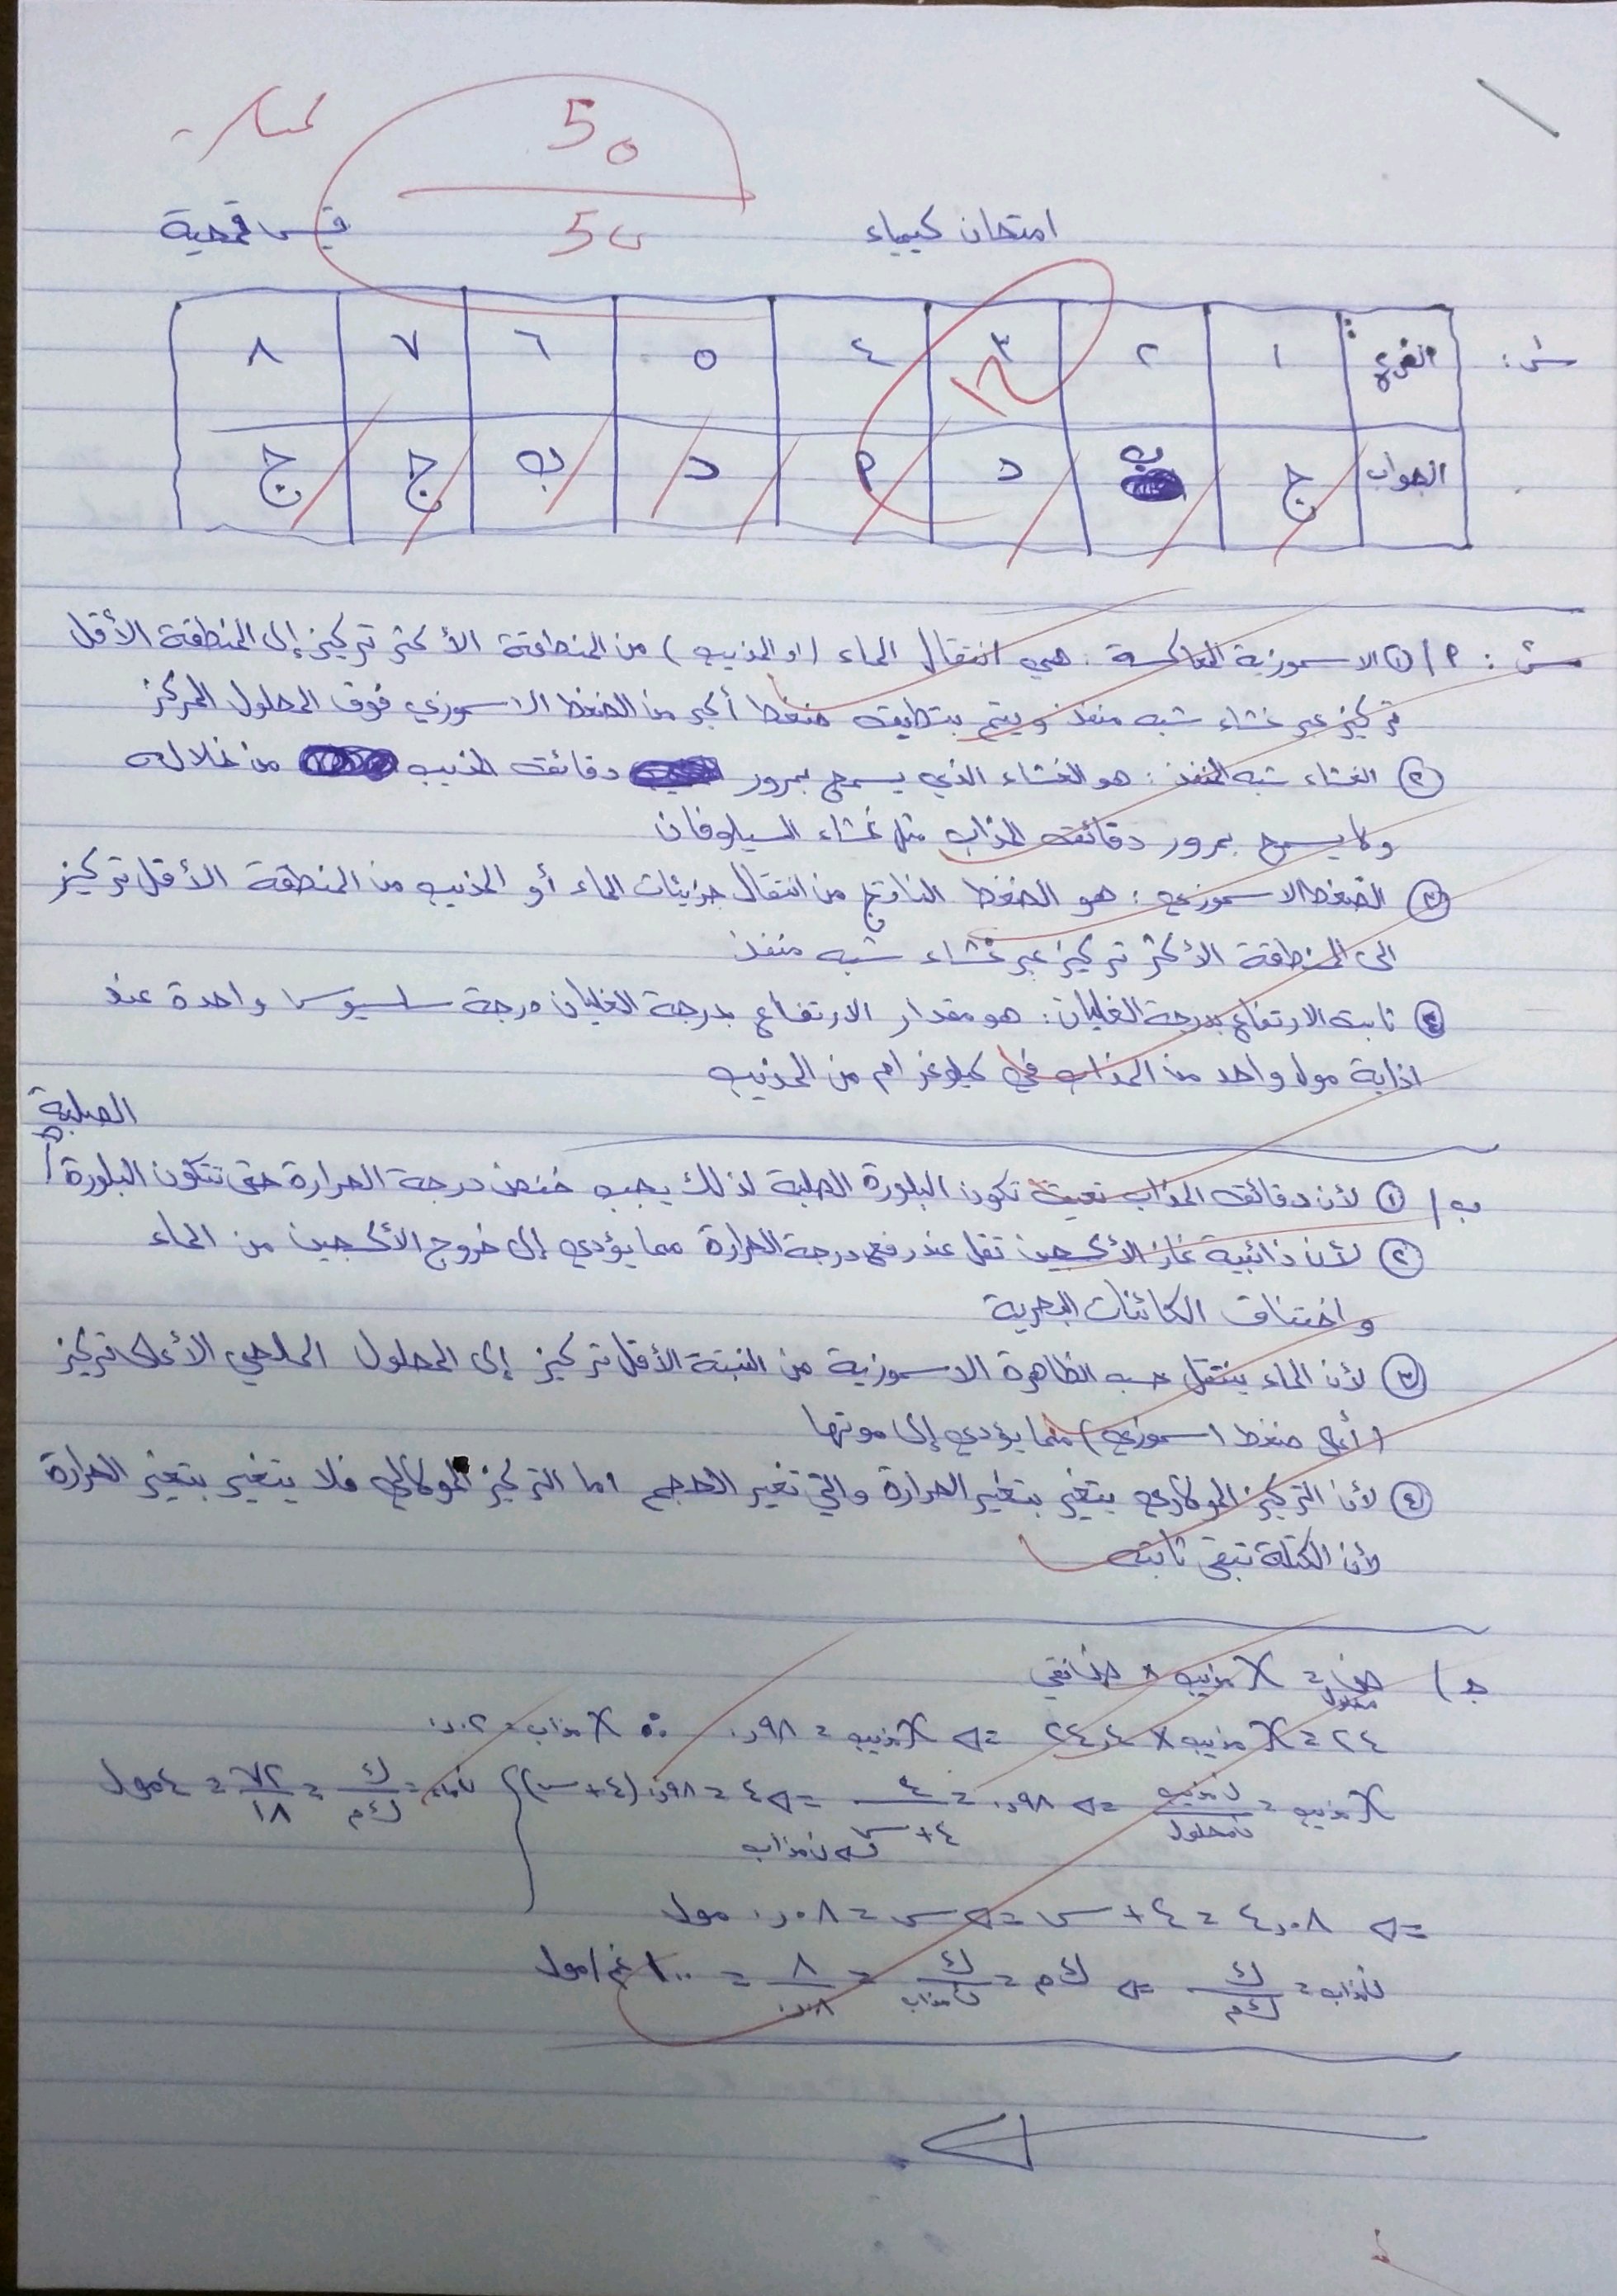 ممتاز
50
50
امتحان كيمياء
قيس قمحية
س١:
الفرع ١ ٢ ٣ ٤ ٥ ٦ ٧ ٨
١٦
الجواب ج ب د أ د ب ج ج
س٢: أ/ ① الاسموزية المعاكسة: هي انتقال الماء (او المذيب) من المنطقة الأكثر تركيز إلى المنطقة الأقل
تركيز عبر غشاء شبه منفذ ويتم بتطبيق ضغط أكبر من الضغط الاسموزي فوق المحلول المركز
② الغشاء شبه المنفذ: هو الغشاء الذي يسمح بمرور دقائق المذيب من خلاله
ولا يسمح بمرور دقائق المذاب مثل غشاء السيلوفان
③ الضغط الاسموزي: هو الضغط الناتج من انتقال جزيئات الماء أو المذيب من المنطقة الأقل تركيز
الى المنطقة الأكثر تركيز عبر غشاء شبه منفذ
④ ثابت الارتفاع بدرجة الغليان: هو مقدار الارتفاع بدرجة الغليان درجة سلسيوس واحدة عند
اذابة مول واحد من المذاب في كيلوغرام من المذيب
ب/ ① لأن دقائق المذاب تعيق تكون البلورة الصلبة لذلك يجب خفض درجة الحرارة حتى تتكون البلورة الصلبة
② لأن ذائبية غاز الأكسجين تقل عند رفع درجة الحرارة مما يؤدي إلى خروج الأكسجين من الماء
واختناق الكائنات البحرية
③ لأن الماء ينتقل حسب الظاهرة الاسموزية من النبتة الأقل تركيز إلى المحلول الملحي الأعلى تركيز
(أعلى ضغط اسموزي) مما يؤدي إلى موتها
④ لأن التركيز المولاري يتغير بتغير الحرارة والتي تغير الحجم اما التركيز المولالي فلا يتغير بتغير الحرارة
لأن الكتلة تبقى ثابته
ج) ض محلول = X مذيب × ض نقي
٢٤ = X مذيب × ٢٤,٤ ⇐ X مذيب = ٠,٩٨ ∴ X مذاب = ٠,٠٢
X مذيب = ن مذيب / ن محلول ⇐ ٠,٩٨ = ٤ / ٤+س ⇐ ٤ = ٠,٩٨ (٤+س) } ن ماء = ك / ك م = ٧٢ / ١٨ = ٤ مول
ن مذاب
⇐ ٤,٠٨ = ٤+س ⇐ س = ٠,٠٨ مول
ن مذاب = ك / ك م ⇐ ك م = ك / ن مذاب = ٨ / ٠,٠٨ = ١٠٠ غم/مول